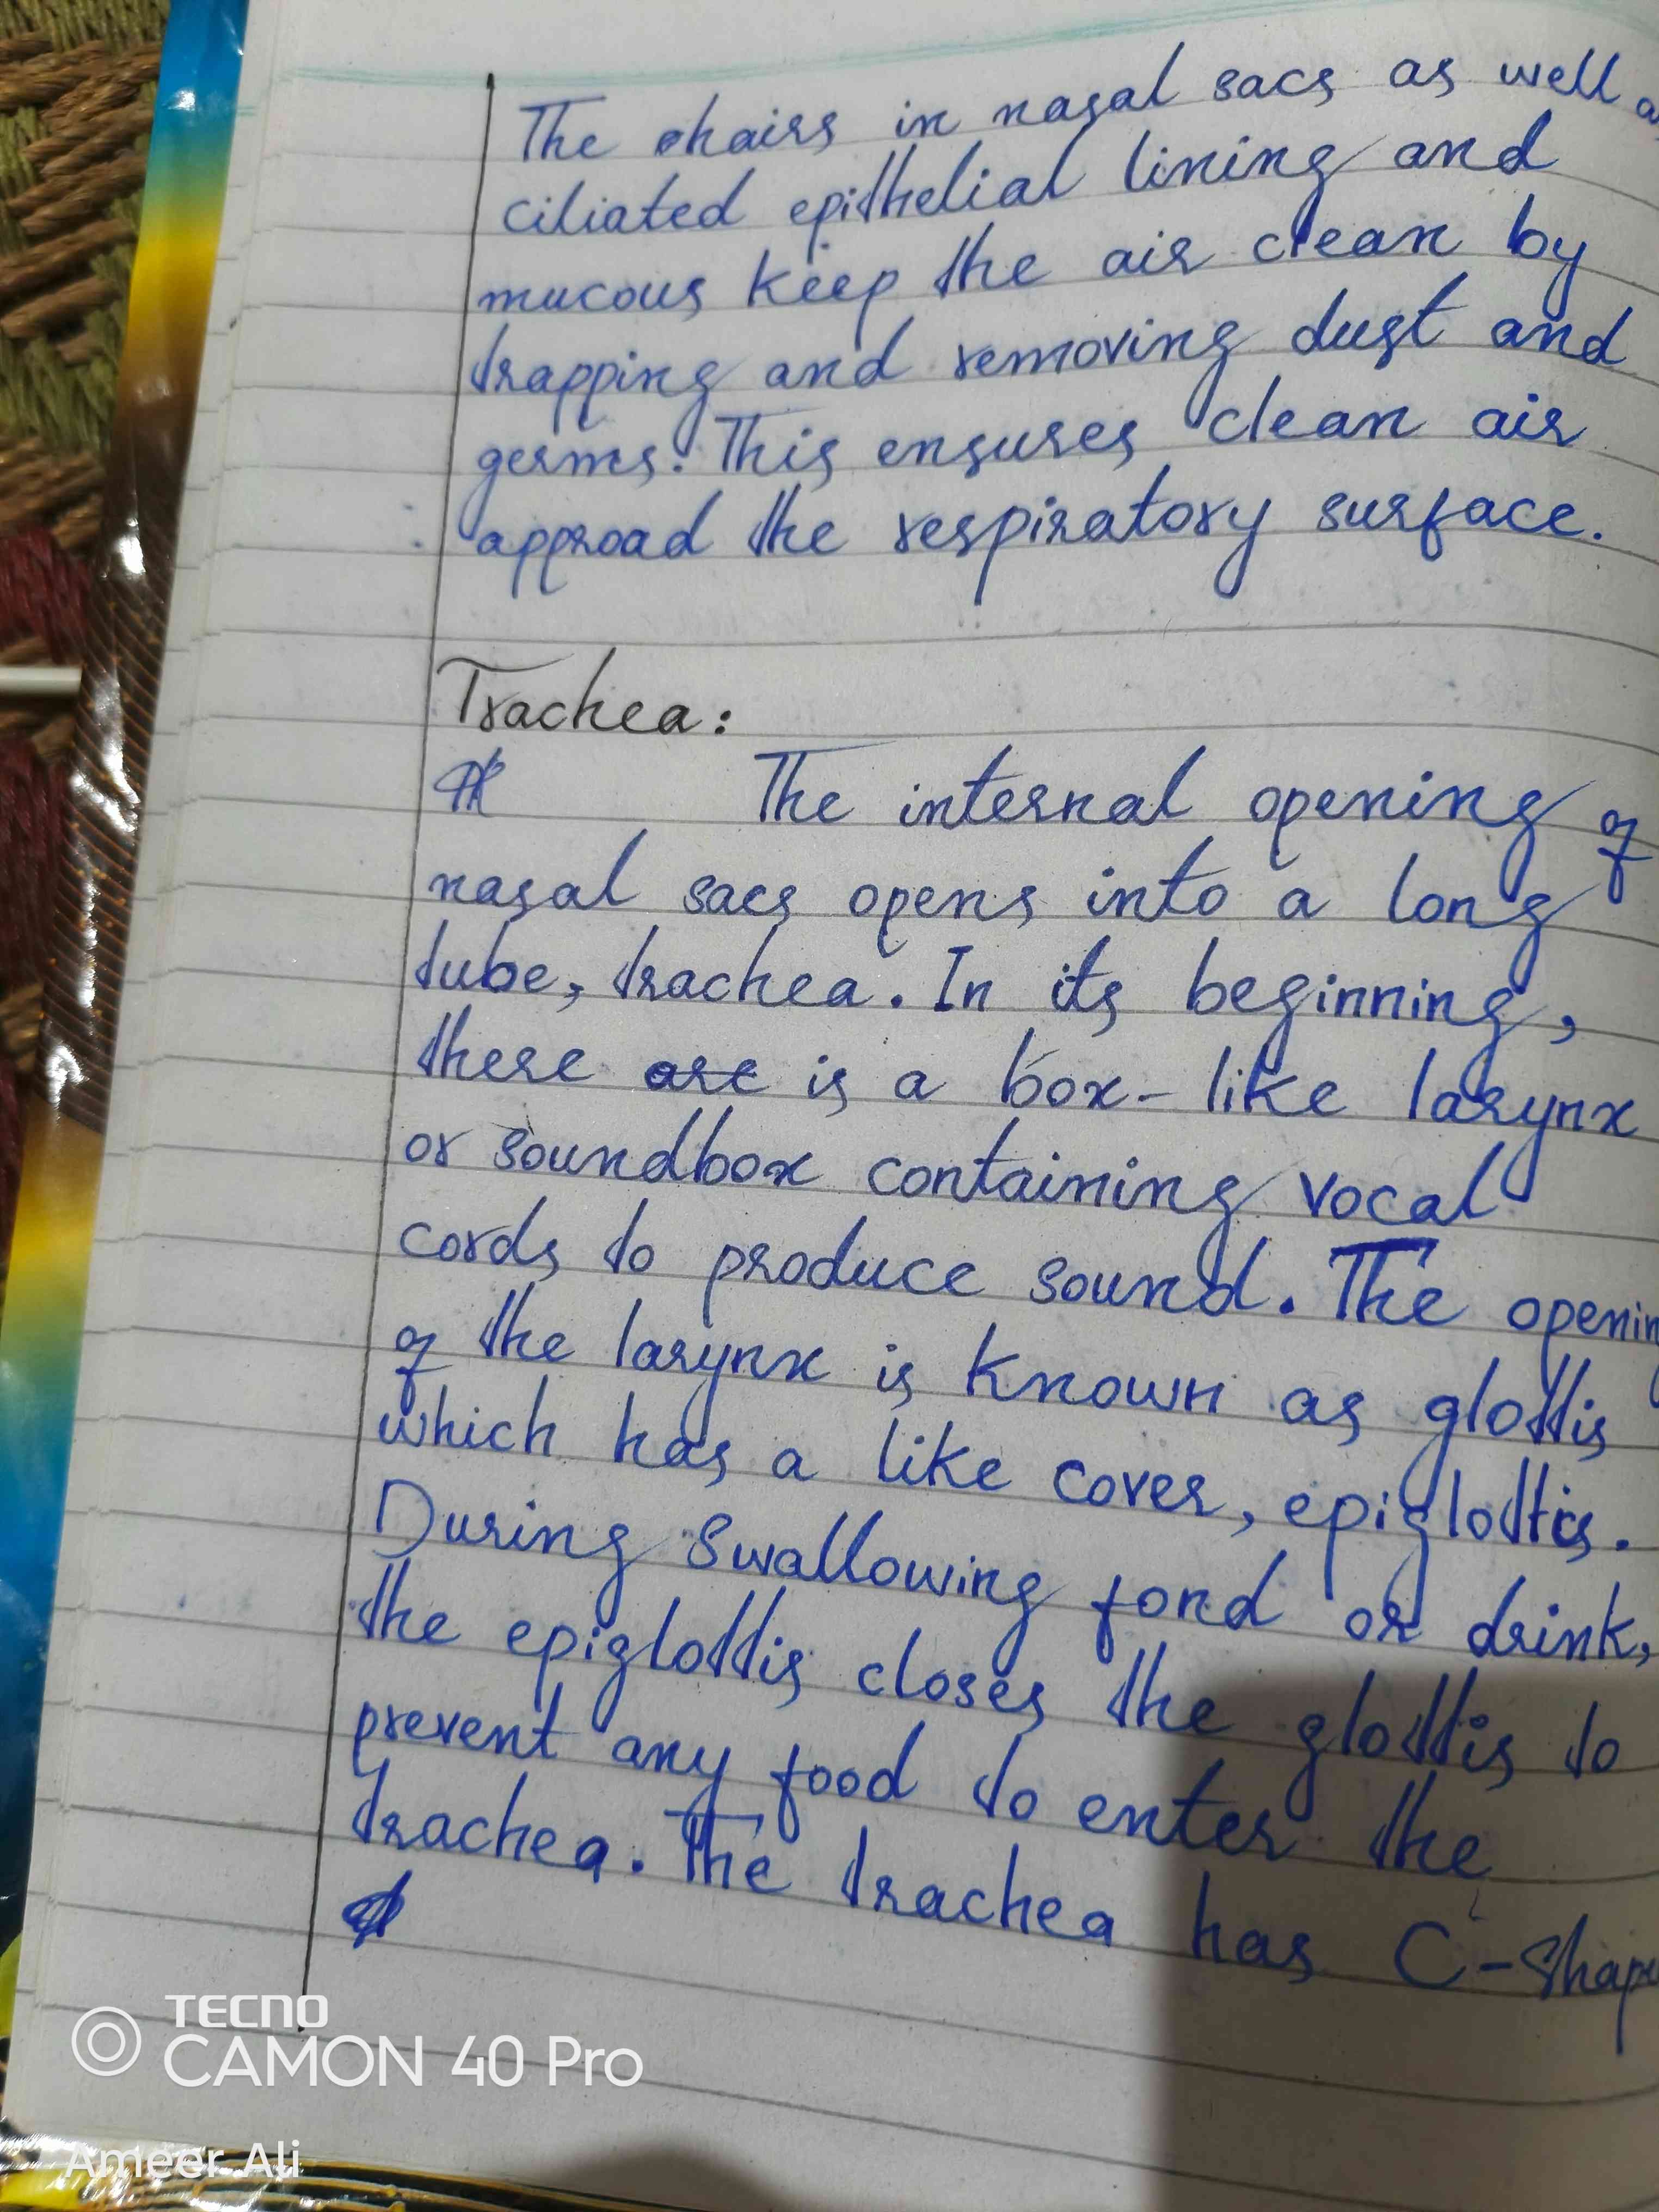 The hairs in nasal sacs as well
ciliated epithelial lining and
mucous keep the air clean by
trapping and removing dust and
germs. This ensures clean air
approad the respiratory surface.
Trachea:
The internal opening of
nasal sacs opens into a long
tube, trachea. In its beginning,
there are is a box-like larynx
or soundbox containing vocal
cords to produce sound. The openin
of the larynx is known as glottis
which has a like cover, epiglottis.
During swallowing fond or drink,
the epiglottis closes the glottis to
prevent any food to enter the
trachea. The trachea has C-shape
TECNO
CAMON 40 Pro
Ameer Ali